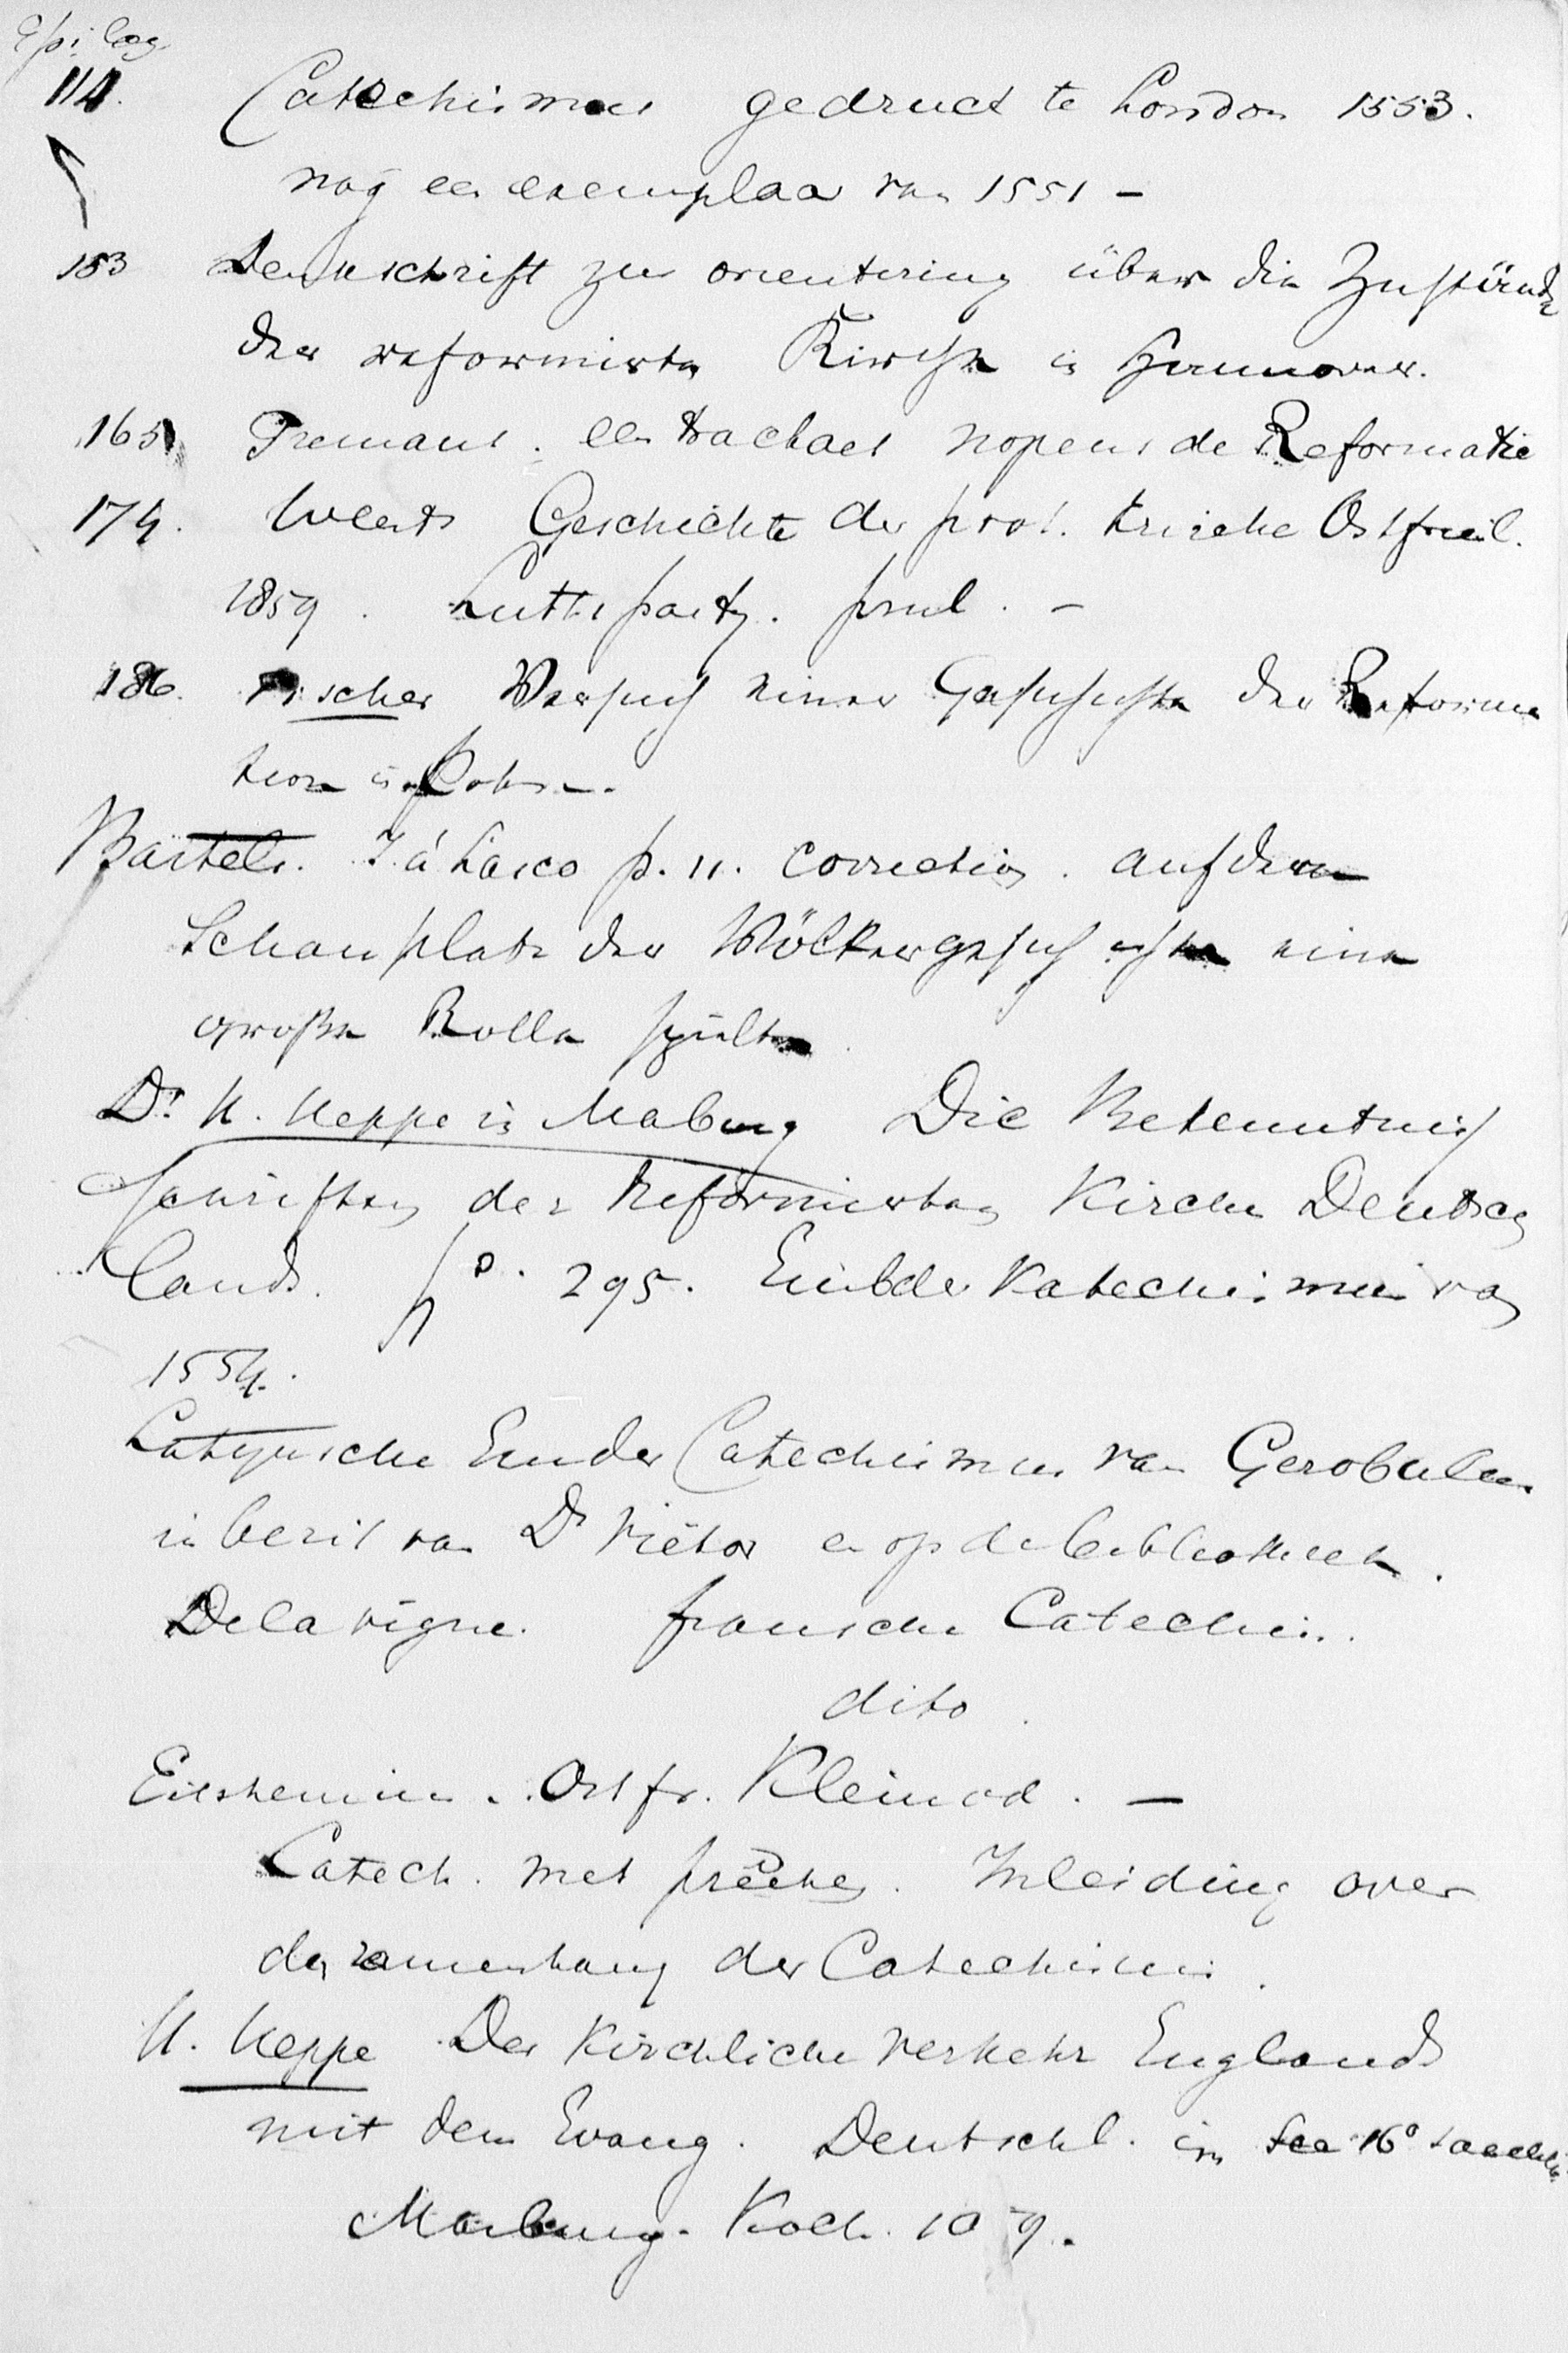 Epilog.
114. Catechismus gedruct te London 1553.
nog een exemplaar van 1551 –
153 Denkschrift zur orientering über die Zustände
der reformirten Kirche in Hannover.
165 een tractaet nopens de Reformatie
174. Weerts Geschichte der prot. Kirche Ostfriesl.
1859.
186. Fischer Versuch einer Geschichte der Reforma
tion in Polen.
Bartels. J. á Lasco p. 11. correctie. auf dem
Schauplatz der Völkergeschichte eine
große Rolle spielte
Dr. H. Heppe in Marburg Die Bekenntniß
schriften der Reformierten Kirche Deutsch
lands. p. 295. Embder Katechismus van
1554.
Latynsche Emder Catechismus van Gerobulus
in bezit van Dr Viëtor en op de bibliotheek.
Delavigne. fransche Catechis.
dito.
Eilshemius. Ostfr. Kleinod. –
Catech. met preeken. Inleiding over
den zamenhang der Catechismi.
H. Heppe Der Kirchliche Verkehr Englands
mit dem Evang. Deutschl. im 16e
Marburg. Koch.